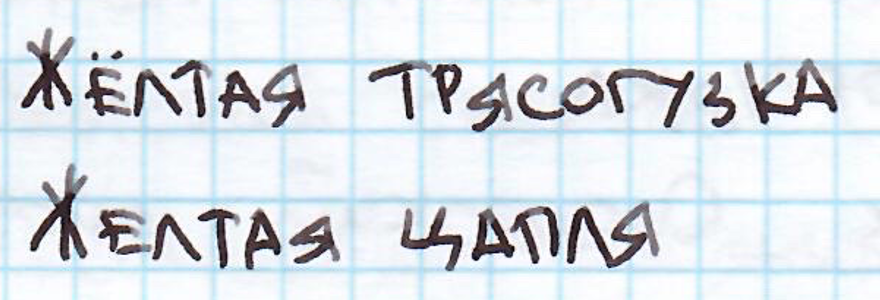 Жёлтая трясогузка
Желтая цапля